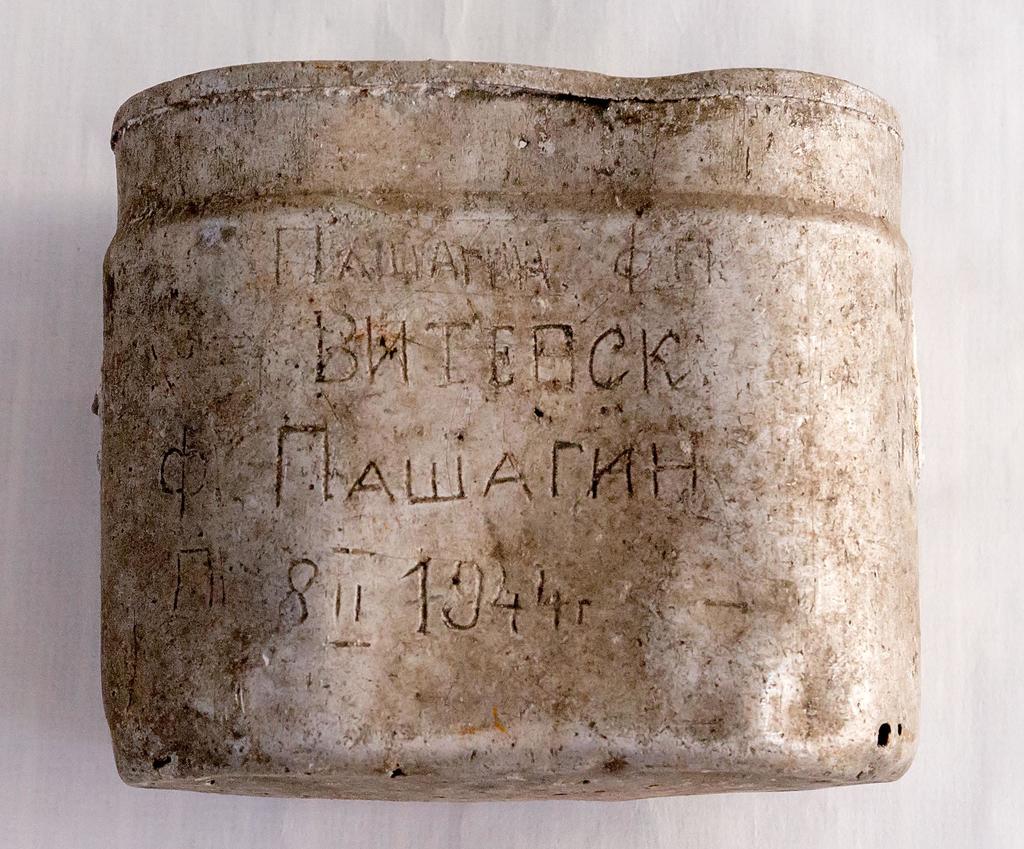 Пашагин Ф П
ВИТЕВСК
Ф Пашагин
П 8 II 1944г